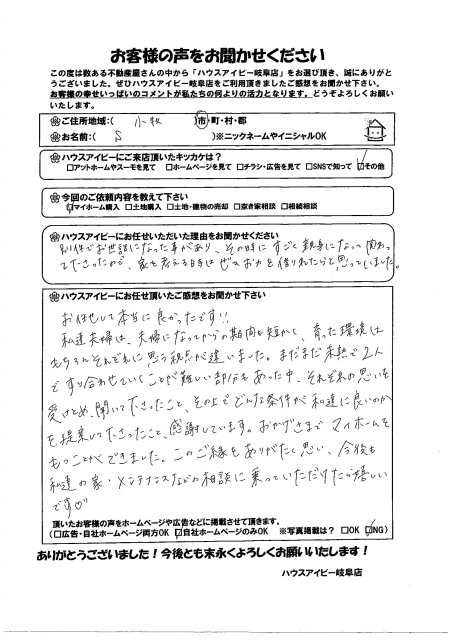 お客様の声をお聞かせください
この度は数ある不動産屋さんの中から「ハウスアイビー岐阜店」をお選び頂き、誠にありがと
うございました。ぜひハウスアイビー岐阜店をご利用頂きましたご感想をお聞かせ下さい。
お客様の幸せいっぱいのコメントが私たちの何よりの活力となります。どうぞよろしくお願い
いたします。
ご住所地域:( 小牧 )市・町・村・郡
お名前:( S )※ニックネームやイニシャルOK
ハウスアイビーにご来店頂いたキッカケは?
□アットホームやスーモを見て □ホームページを見て □チラシ・広告を見て □SNSで知って ☑その他
今回のご依頼内容を教えて下さい
☑マイホーム購入 □土地購入 □土地・建物の売却 □空き家相談 □相続相談
ハウスアイビーにお任せいただいた理由をお聞かせください
別件でお世話になった事があり、その時にすごく親身になって関わっ
て下さったので、家を考える時はぜひお力を借りれたらと思っていました。
ハウスアイビーにお任せ頂いたご感想をお聞かせ下さい
お任せして本当に良かったです!!
私達夫婦は、夫婦になってからの期間も短かく、育った環境は
もちろんそれぞれに思う視点が違いました。まだまだ未熟で2人
ですり合わせていくことが難しい部分もあった中、それぞれの思いを
受けとめ、聞いて下さったこと、その上でどんな条件が私達に良いのか
を提案して下さったこと、感謝しています。おかげさまでマイホームを
もつことができました。このご縁をありがたく思い、今後も
私達の家・メンテナスなどの相談に乗っていただけたら嬉しい
です♡
頂いたお客様の声をホームページや広告などに掲載させて頂きます。
(□広告・自社ホームページ両方OK ☑自社ホームページのみOK ※写真掲載は? □OK ☑NG)
ありがとうございました!今後とも末永くよろしくお願いいたします!
ハウスアイビー岐阜店